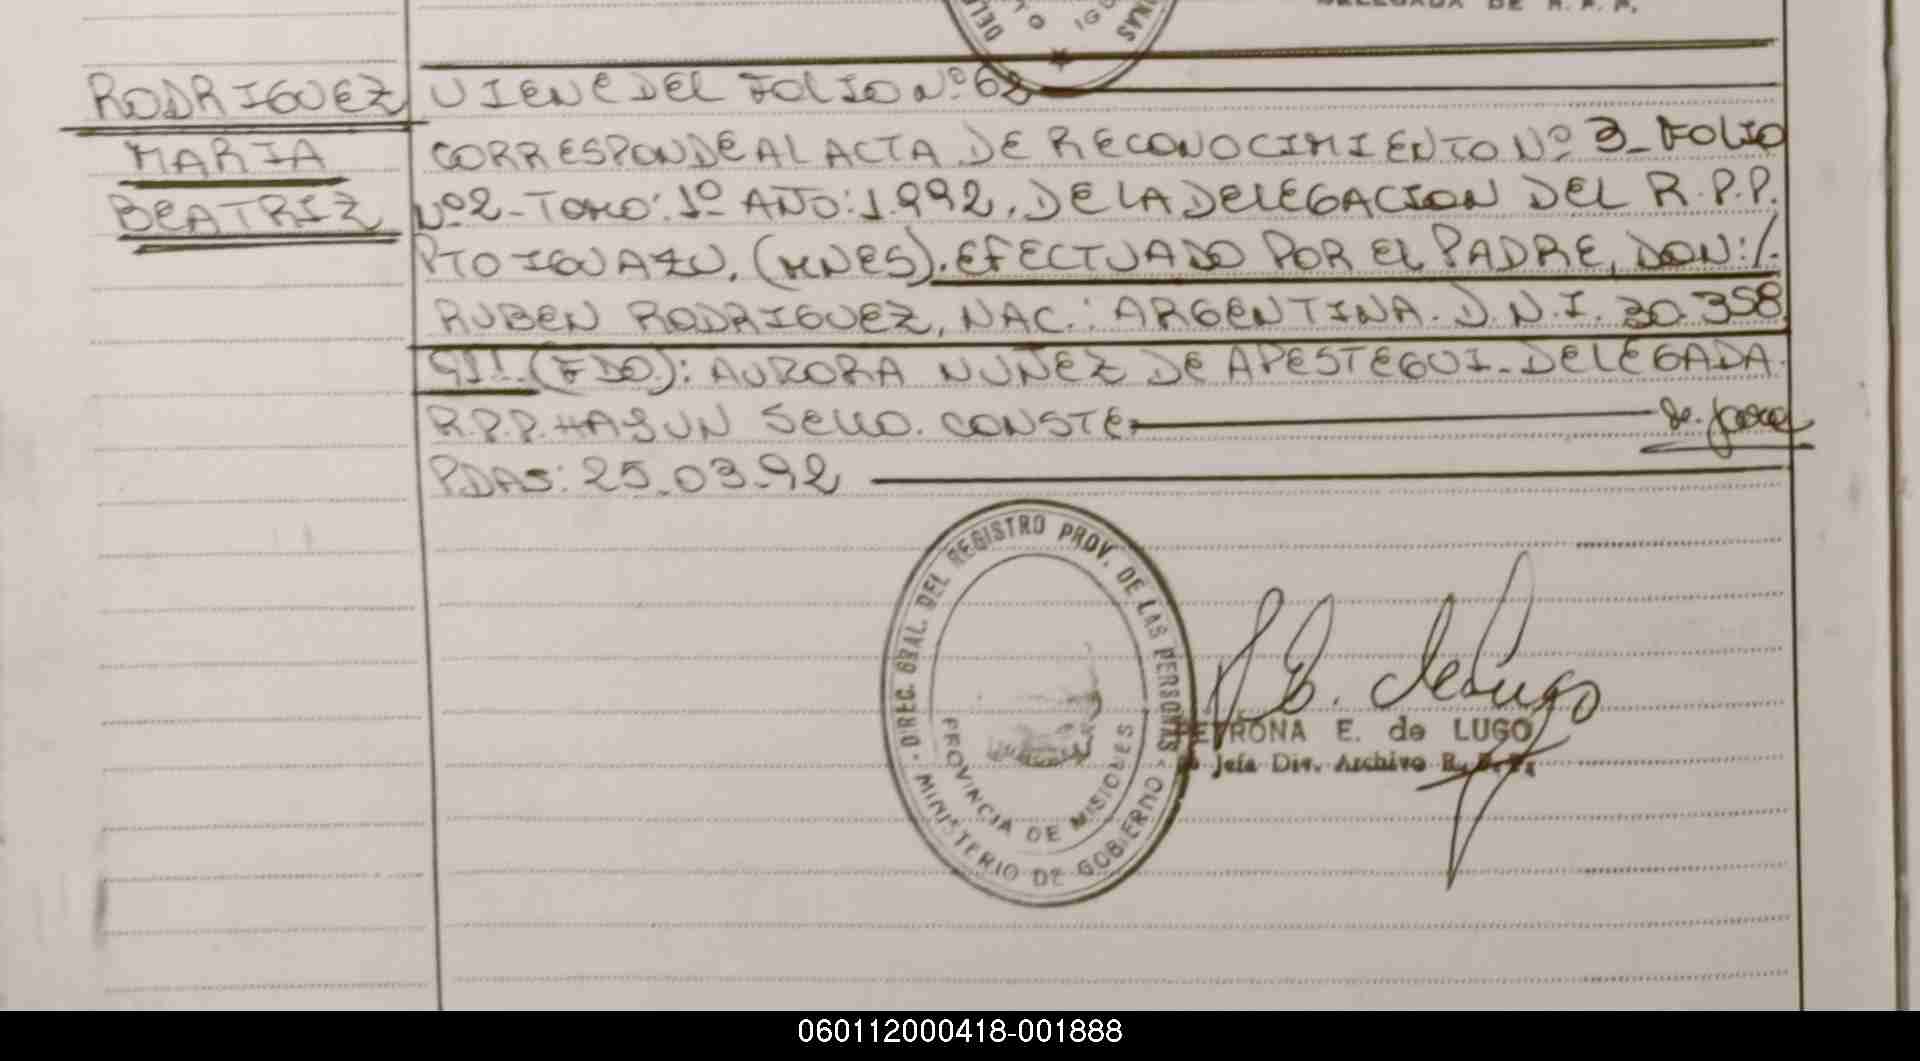 DELEGADA DE R.P.P.
RODRIGUEZ
MARIA
BEATRIZ
VIENE DEL FOLIO Nº 68
CORRESPONDE AL ACTA DE RECONOCIMIENTO Nº 3_ FOLIO
Nº2_ TOMO: 1º AÑO: 1.992, DE LA DELEGACION DEL R.P.P.
PTO IGUAZU, (MNES). EFECTUADO POR EL PADRE, DON:/.
RUBEN RODRIGUEZ, NAC.: ARGENTINA. D.N.I. 30.358
911. (FDO): AURORA NUÑEZ DE APESTEGUI_ DELEGADA.
R.P.P. HAY UN SELLO. CONSTE
PDAS: 25_03_92
DIREC. GRAL. DEL REGISTRO PROV. DE LAS PERSONAS
MINISTERIO DE GOBIERNO
PROVINCIA DE MISIONES
P.E. de Lugo
PETRONA E. de LUGO
Jefa Div. Archivo R.P.P.
060112000418-001888